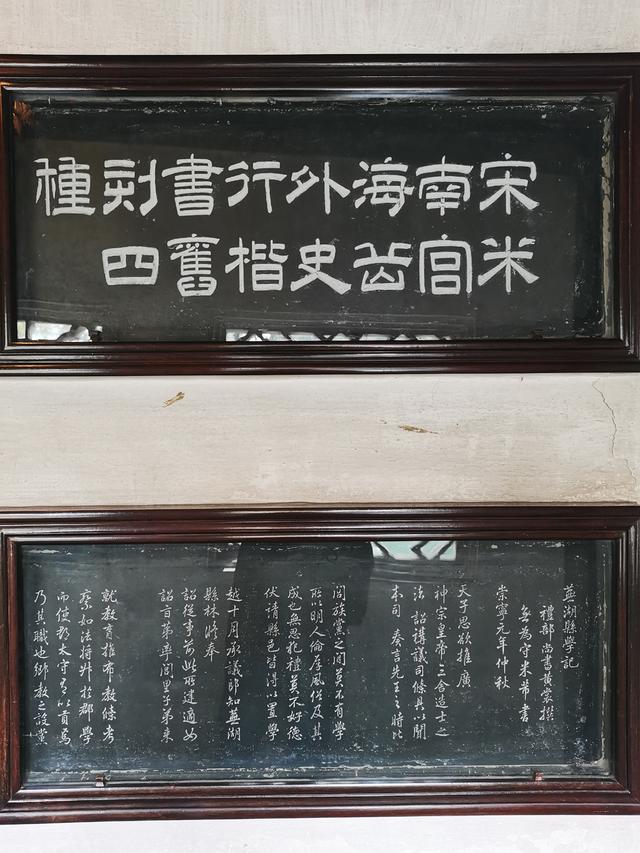 宋米
南宮
海岳
外史
行楷
書舊
刻四
種
蕪湖縣學記
禮部尚書黃裳撰
無為守米芾書
崇寧元年仲秋
天子思欲推廣
神宗皇帝三舍造士之
法 詔講議司條具以聞
本司 奏言先王之時比
閭族黨之間莫不有學
所以明人倫厚風俗及其
成也無思犯禮莫不好德
伏請縣邑皆得以置學
越十月承議郎知蕪湖
縣林修奉
詔從事前此所建適如
詔旨弟率閭里子弟來
就教育推布教條考
察如法將升於郡學
而使郡太守有以貢焉
乃其職也鄉教之設黨